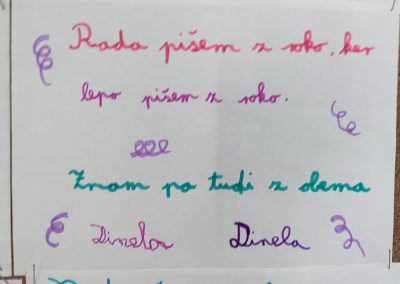 Rada pišem z roko, ker
lepo pišem z roko.
Znam pa tudi z obema
Dinela Dinela